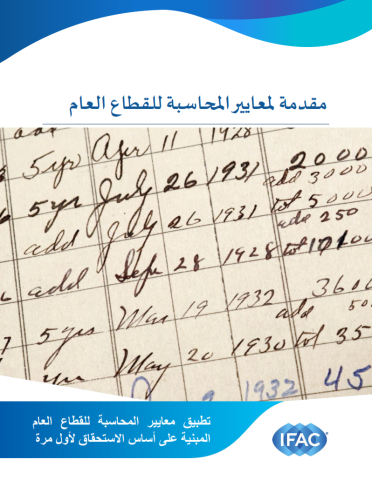 مقدمة لمعايير المحاسبة للقطاع العام
Apr 11 1928
5 yr July 26 1931 2000
add 3000
5 yr July 26 1931 tot 5000
add 250
add Sept 28 1928 tot
add Mar 19 1932 3600
add 50
5 yrs May 20 1930 tot 35
1932 45
تطبيق معايير المحاسبة للقطاع العام
المبنية على أساس الاستحقاق لأول مرة
IFAC